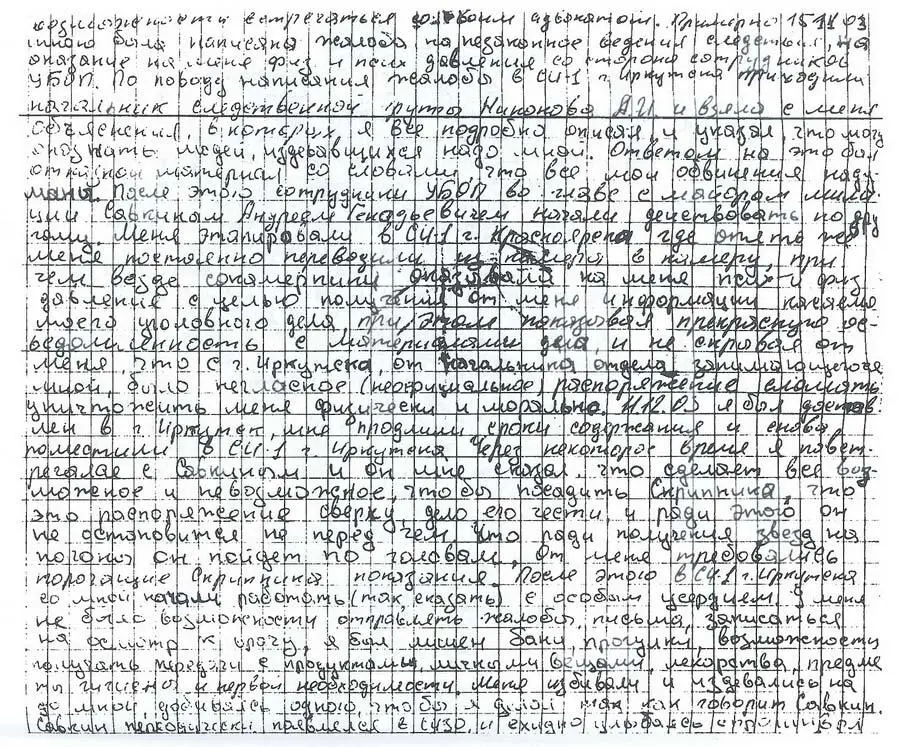 возможности встречаться со своим адвокатом. Примерно 15.11.03
мною была написана жалоба на незаконное ведения следствия, на
оказание на меня физ и псих давления со стороны сотрудников
УБОП. По поводу написания жалобы в СИ-1 г. Иркутска приходили
начальник следственной группы Никонова Д.И. и взяла с меня
объяснения, в которых я все подробно описал и указал, что могу
опознать людей, издевавшихся надо мной. Ответом на это был
отказной материал со словами, что все мои обвинения наду-
маны. После этого сотрудники УБОП во главе с майором мили-
ции Савкиным Андреем Генадьевичем начали действовать по дру
гому. Меня этапировали в СИ-1 г. Красноярска где опять же
меня постоянно переводили из камеры в камеру, при
чем везде сокамерники оказывали на меня псих и физ
давления с целью получения от меня информации касаемо
моего уголовного дела, при этом показывая прекрасную ос-
ведомленность с материалами дела, и не скрывая от
меня, что с г. Иркутска, от начальника отдела занимающегося
мной, было негласное (неофициальное) распоряжение сломать
уничтожить меня физически и морально. 11.12.03 я был достав
лен в г. Иркутск, мне продлили сроки содержания и снова
поместили в СИ-1 г. Иркутска Через некоторое время я повст-
речался с Савкиным и он мне сказал, что сделает все воз-
можное и невозможное, чтобы посадить Скрипника, что
это распоряжение сверху, дело его чести, и ради этого он
не остановится не перед чем. Что ради получения звезд на
погоны он пойдет по головам, от меня требовались
порочащие Скрипника показания. После этого в СИ-1 г. Иркутска
со мной начали работать (так сказать) с особым усердием. У меня
не было возможности отправлять жалобы, письма, записаться
на осмотр к врачу, я был лишен бани, прогулки, возможности
получать передачи с продуктами, личными вещами, лекарства, предме
ты гигиены и первой необходимости. Меня избивали и издевались на
до мной добиваясь одного, чтобы я делал так как говорит Савкин.
Савкин периодически появлялся в СИЗО, и ехидно улыбаясь спрашивал